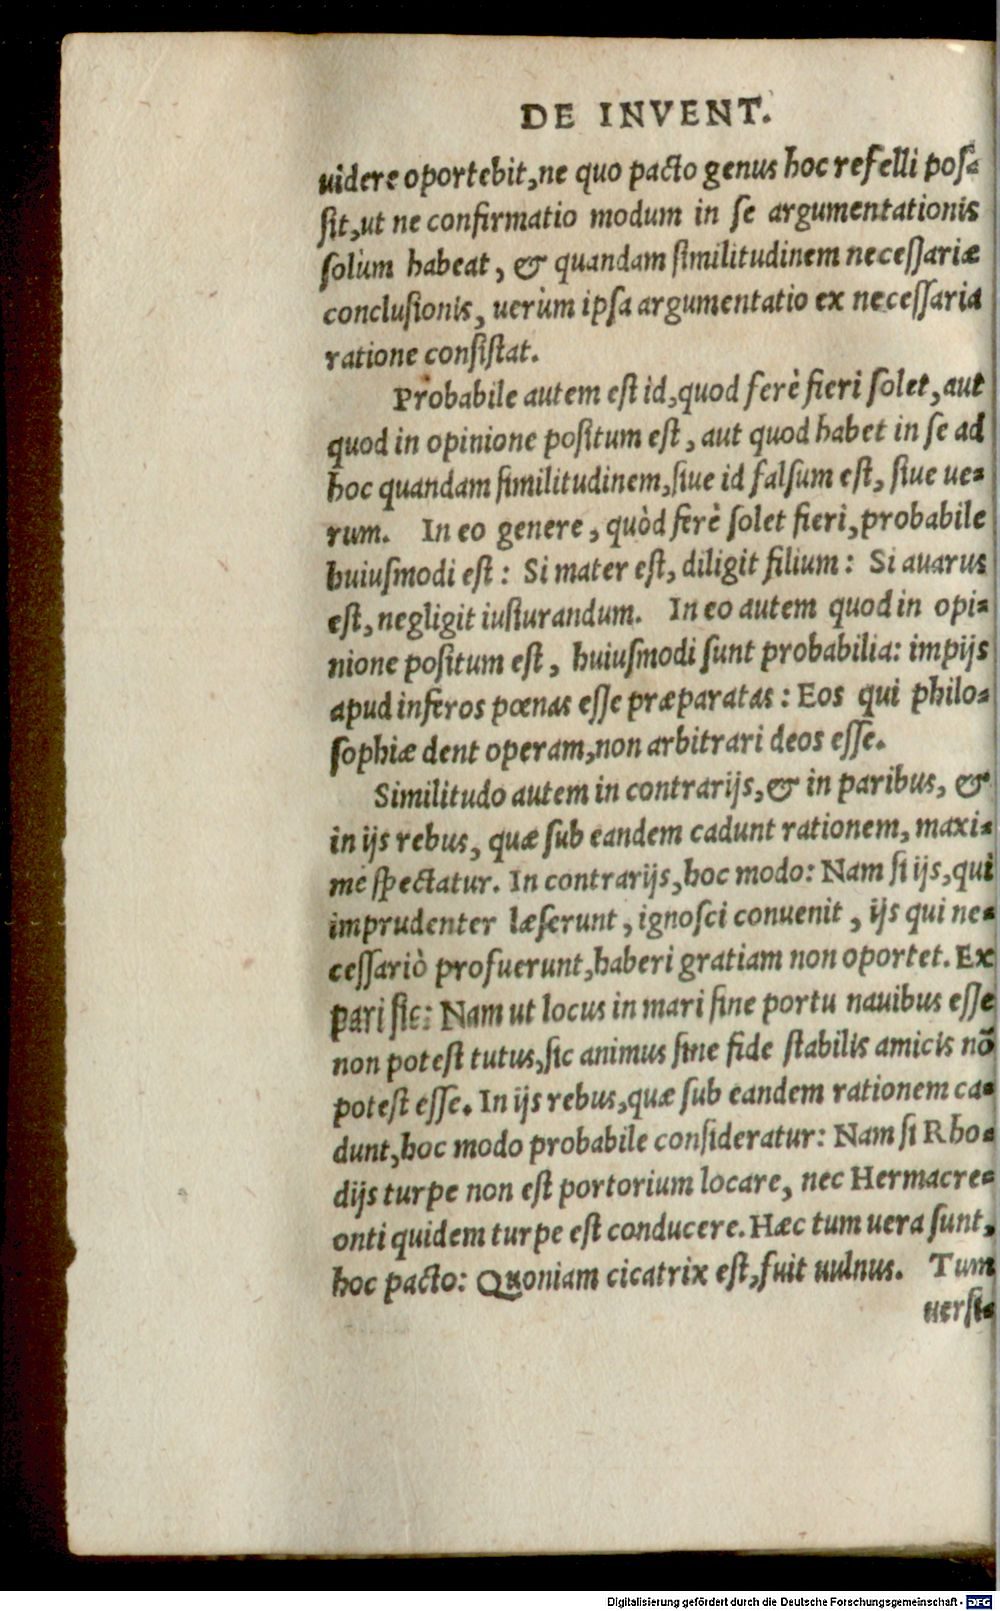 DE INVENT.
uidere oportebit, ne quo pacto genus hoc refelli pos-
sit, ut ne confirmatio modum in se argumentationis
solùm habeat, & quandam similitudinem necessariæ
conclusionis, uerùm ipsa argumentatio ex necessaria
ratione consistat.
Probabile autem est id, quod ferè fieri solet, aut
quod in opinione positum est, aut quod habet in se ad
hoc quandam similitudinem, siue id falsum est, siue ue-
rum. In eo genere, quòd ferè solet fieri, probabile
huiusmodi est: Si mater est, diligit filium: Si auarus
est, negligit iusiurandum. In eo autem quod in opi-
nione positum est, huiusmodi sunt probabilia: impijs
apud inferos pœnas esse præparatas: Eos qui philo-
sophiæ dent operam, non arbitrari deos esse.
Similitudo autem in contrarijs, & in paribus, &
in ijs rebus, quæ sub eandem cadunt rationem, maxi-
mè spectatur. In contrarijs, hoc modo: Nam si ijs, qui
imprudenter læserunt, ignosci conuenit, ijs qui ne-
cessariò profuerunt, haberi gratiam non oportet. Ex
pari sic: Nam ut locus in mari sine portu nauibus esse
non potest tutus, sic animus sine fide stabilis amicis nõ
potest esse. In ijs rebus, quæ sub eandem rationem ca-
dunt, hoc modo probabile consideratur: Nam si Rho-
dijs turpe non est portorium locare, nec Hermacre-
onti quidem turpe est conducere. Hæc tum uera sunt,
hoc pacto: Quoniam cicatrix est, fuit uulnus. Tum
uersi-
Digitalisierung gefördert durch die Deutsche Forschungsgemeinschaft - DFG